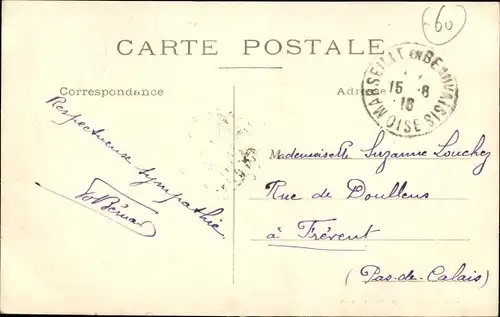 60
CARTE POSTALE
Correspondance
Adresse
MARSEILLE EN BEAUVAISIS
15 - 8
16
OISE
Respectueuse sympathie
Mademoiselle Suzanne Louchez
Rue de Doullens
à Frévent
(Pas-de-Calais)